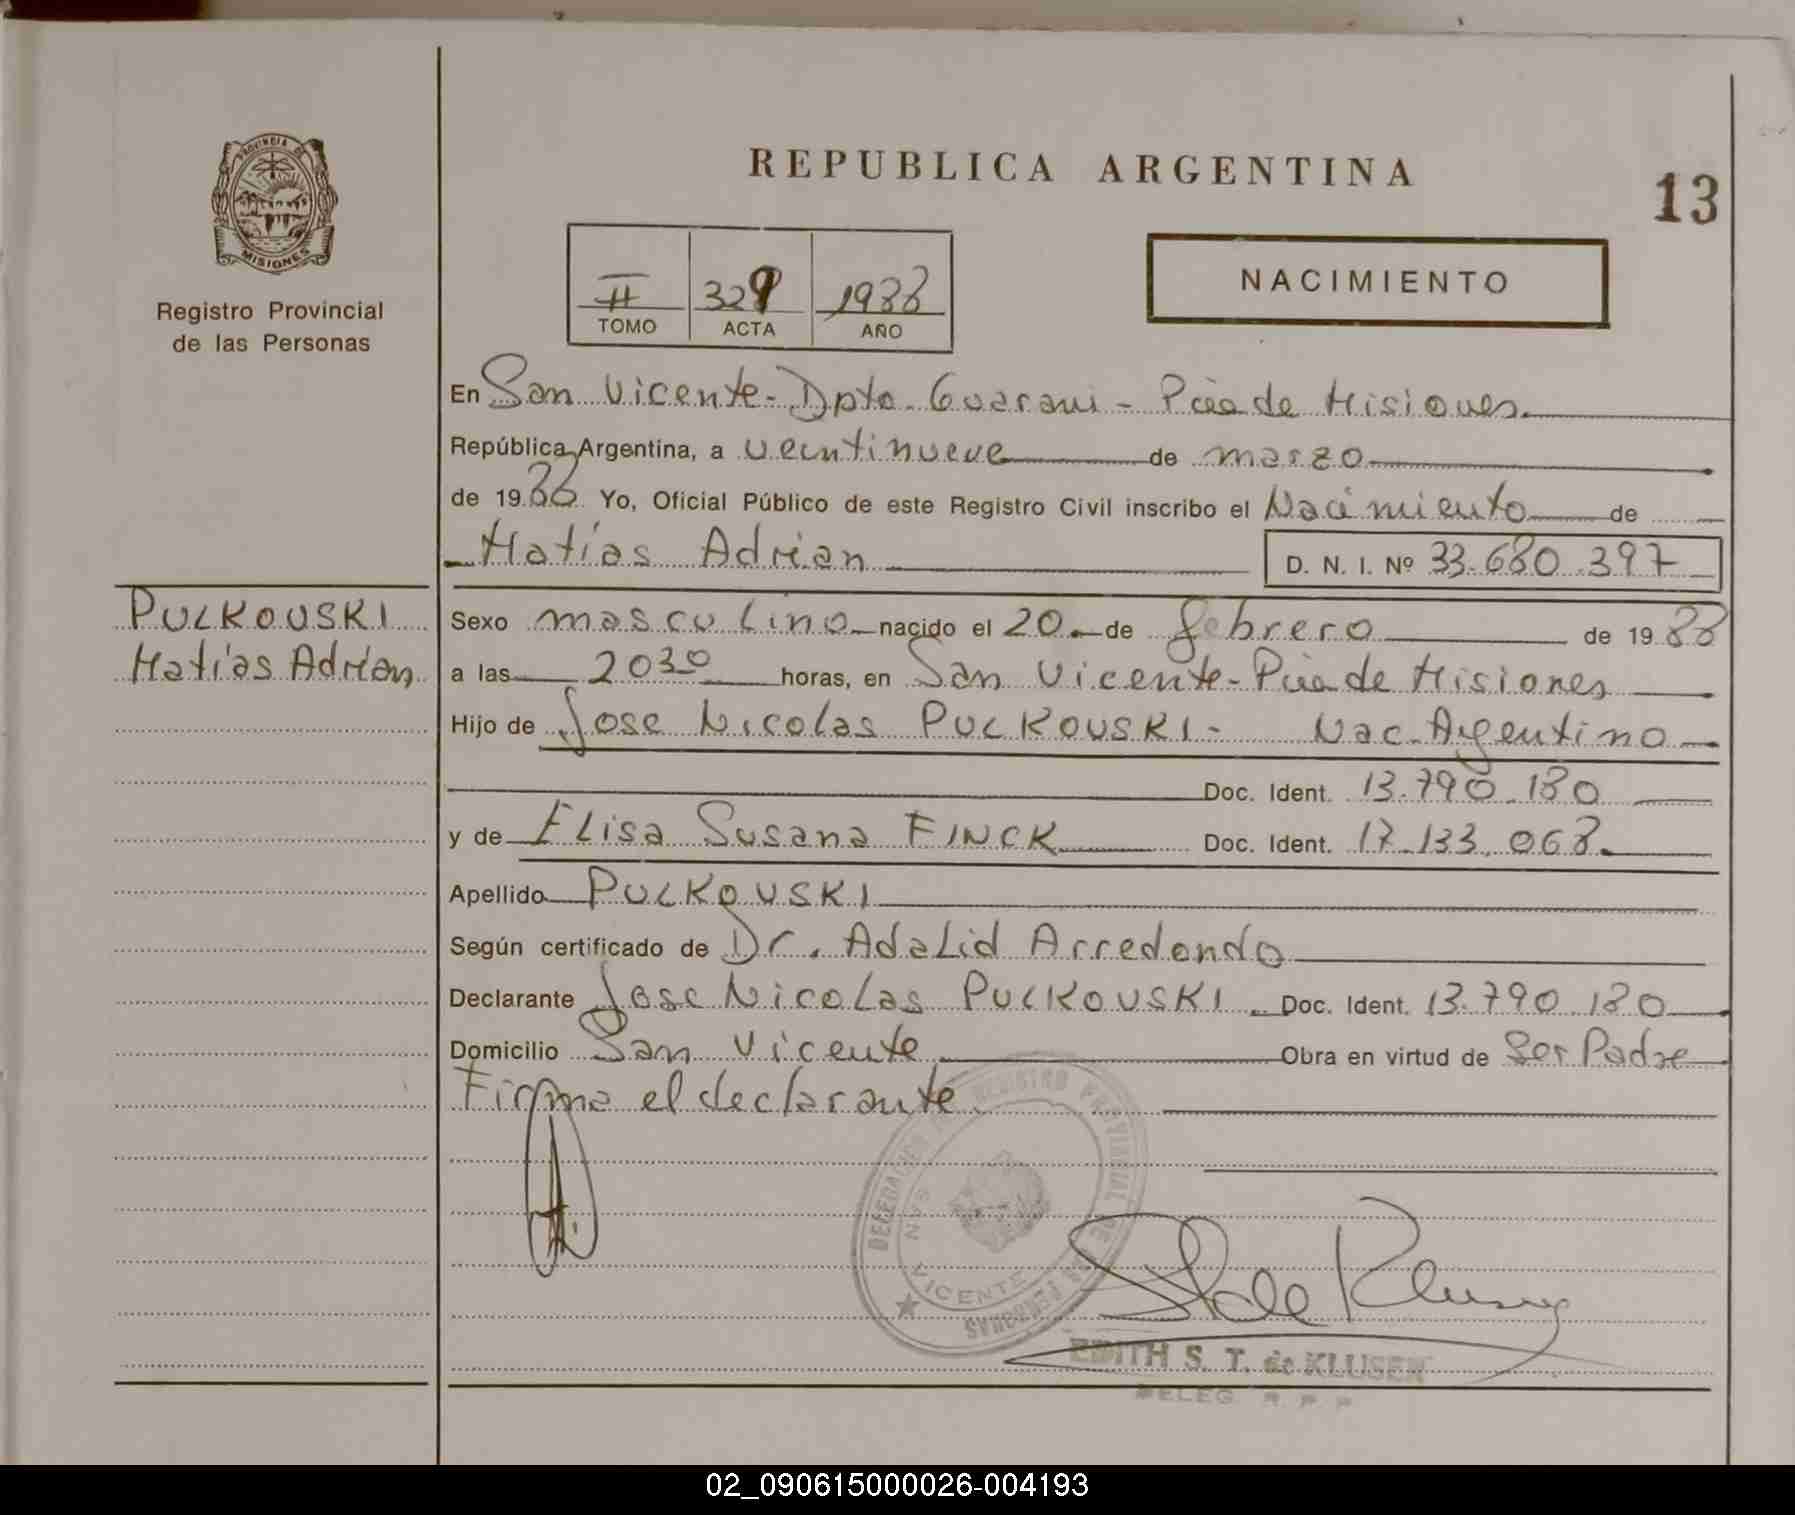 PROVINCIA DE
MISIONES
Registro Provincial
de las Personas
PULKOUSKI
Matías Adrian
REPUBLICA ARGENTINA
13
II 329 1988
TOMO ACTA AÑO
NACIMIENTO
En San Vicente - Dpto. Guarani - Pcia de Misiones
República Argentina, a veintinueve de marzo
de 1988 Yo, Oficial Público de este Registro Civil inscribo el Nacimiento de
Matías Adrian D. N. I. Nº 33.680.397
Sexo masculino nacido el 20 de febrero de 1988
a las 2030 horas, en San Vicente - Pcia de Misiones
Hijo de Jose Nicolas PULKOUSKI - Nac. Argentino
Doc. Ident. 13.790.180
y de Elisa Susana FINCK Doc. Ident. 17.133.068
Apellido PULKOUSKI
Según certificado de Dr. Adalid Arredondo
Declarante Jose Nicolas PULKOUSKI Doc. Ident. 13.790.180
Domicilio San Vicente Obra en virtud de Ser Padre
Firma el declarante.
DELEGACION REGISTRO PROVINCIAL DE LAS PERSONAS
SAN VICENTE
EDITH S. T. de KLUSEN
DELEG. R. P. P.
02_090615000026-004193